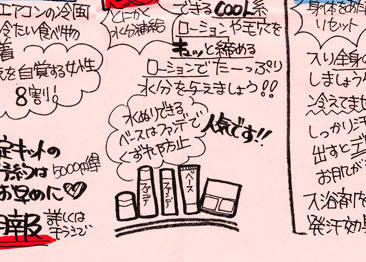 エアコンの冷風
冷たい食べ物
着
を自覚する女性
8割!
限定キットの
5000円
お早めに♡
詳しくは
とにかく
水分補給
できるCOOL系
ローションや毛穴を
キュッと締める
ローションでたーっぷり
水分を与えましょう!!
水ぬりできる
ベースはファンデで
くずれ防止
人気です!!
ファンデ
ファンデ
ベース
身体をお
リセット
入り全身の
しましょう
冷えてませ
しっかり汗
出すとデ
お肌が
入浴剤を
発汗効果